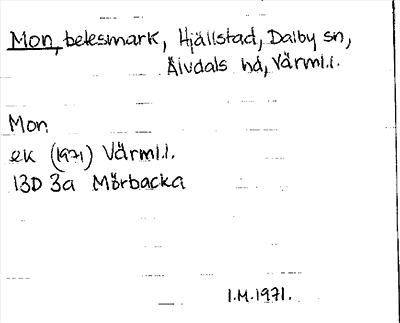 Mon, betesmark, Hjällstad, Dalby sn,
Älvdals hd, Värml.l.
Mon
ek (1971) Värml.l.
13D 3a Mörbacka
I.M.1971.